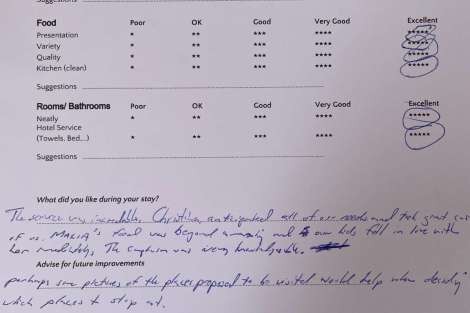 Suggestions
Food Poor OK Good Very Good Excellent
Presentation * ** *** **** *****
Variety * ** *** **** *****
Quality * ** *** **** *****
Kitchen (clean) * ** *** **** *****
Suggestions
Rooms/ Bathrooms Poor OK Good Very Good Excellent
Neatly * ** *** **** *****
Hotel Service
(Towels, Bed...) * ** *** **** *****
Suggestions
What did you like during your stay?
The service was incredible. Christina anticipated all of our needs and took great care
of us. MARIA's food was beyond amazing and our kids fell in love with
her immediately. The Captain was very knowledgeable.
Advise for future improvements
perhaps some pictures of the places proposed to be visited would help when deciding
which places to stop at.